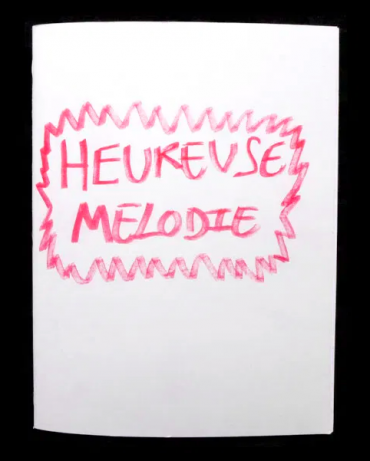 HEUREUSE
MELODIE